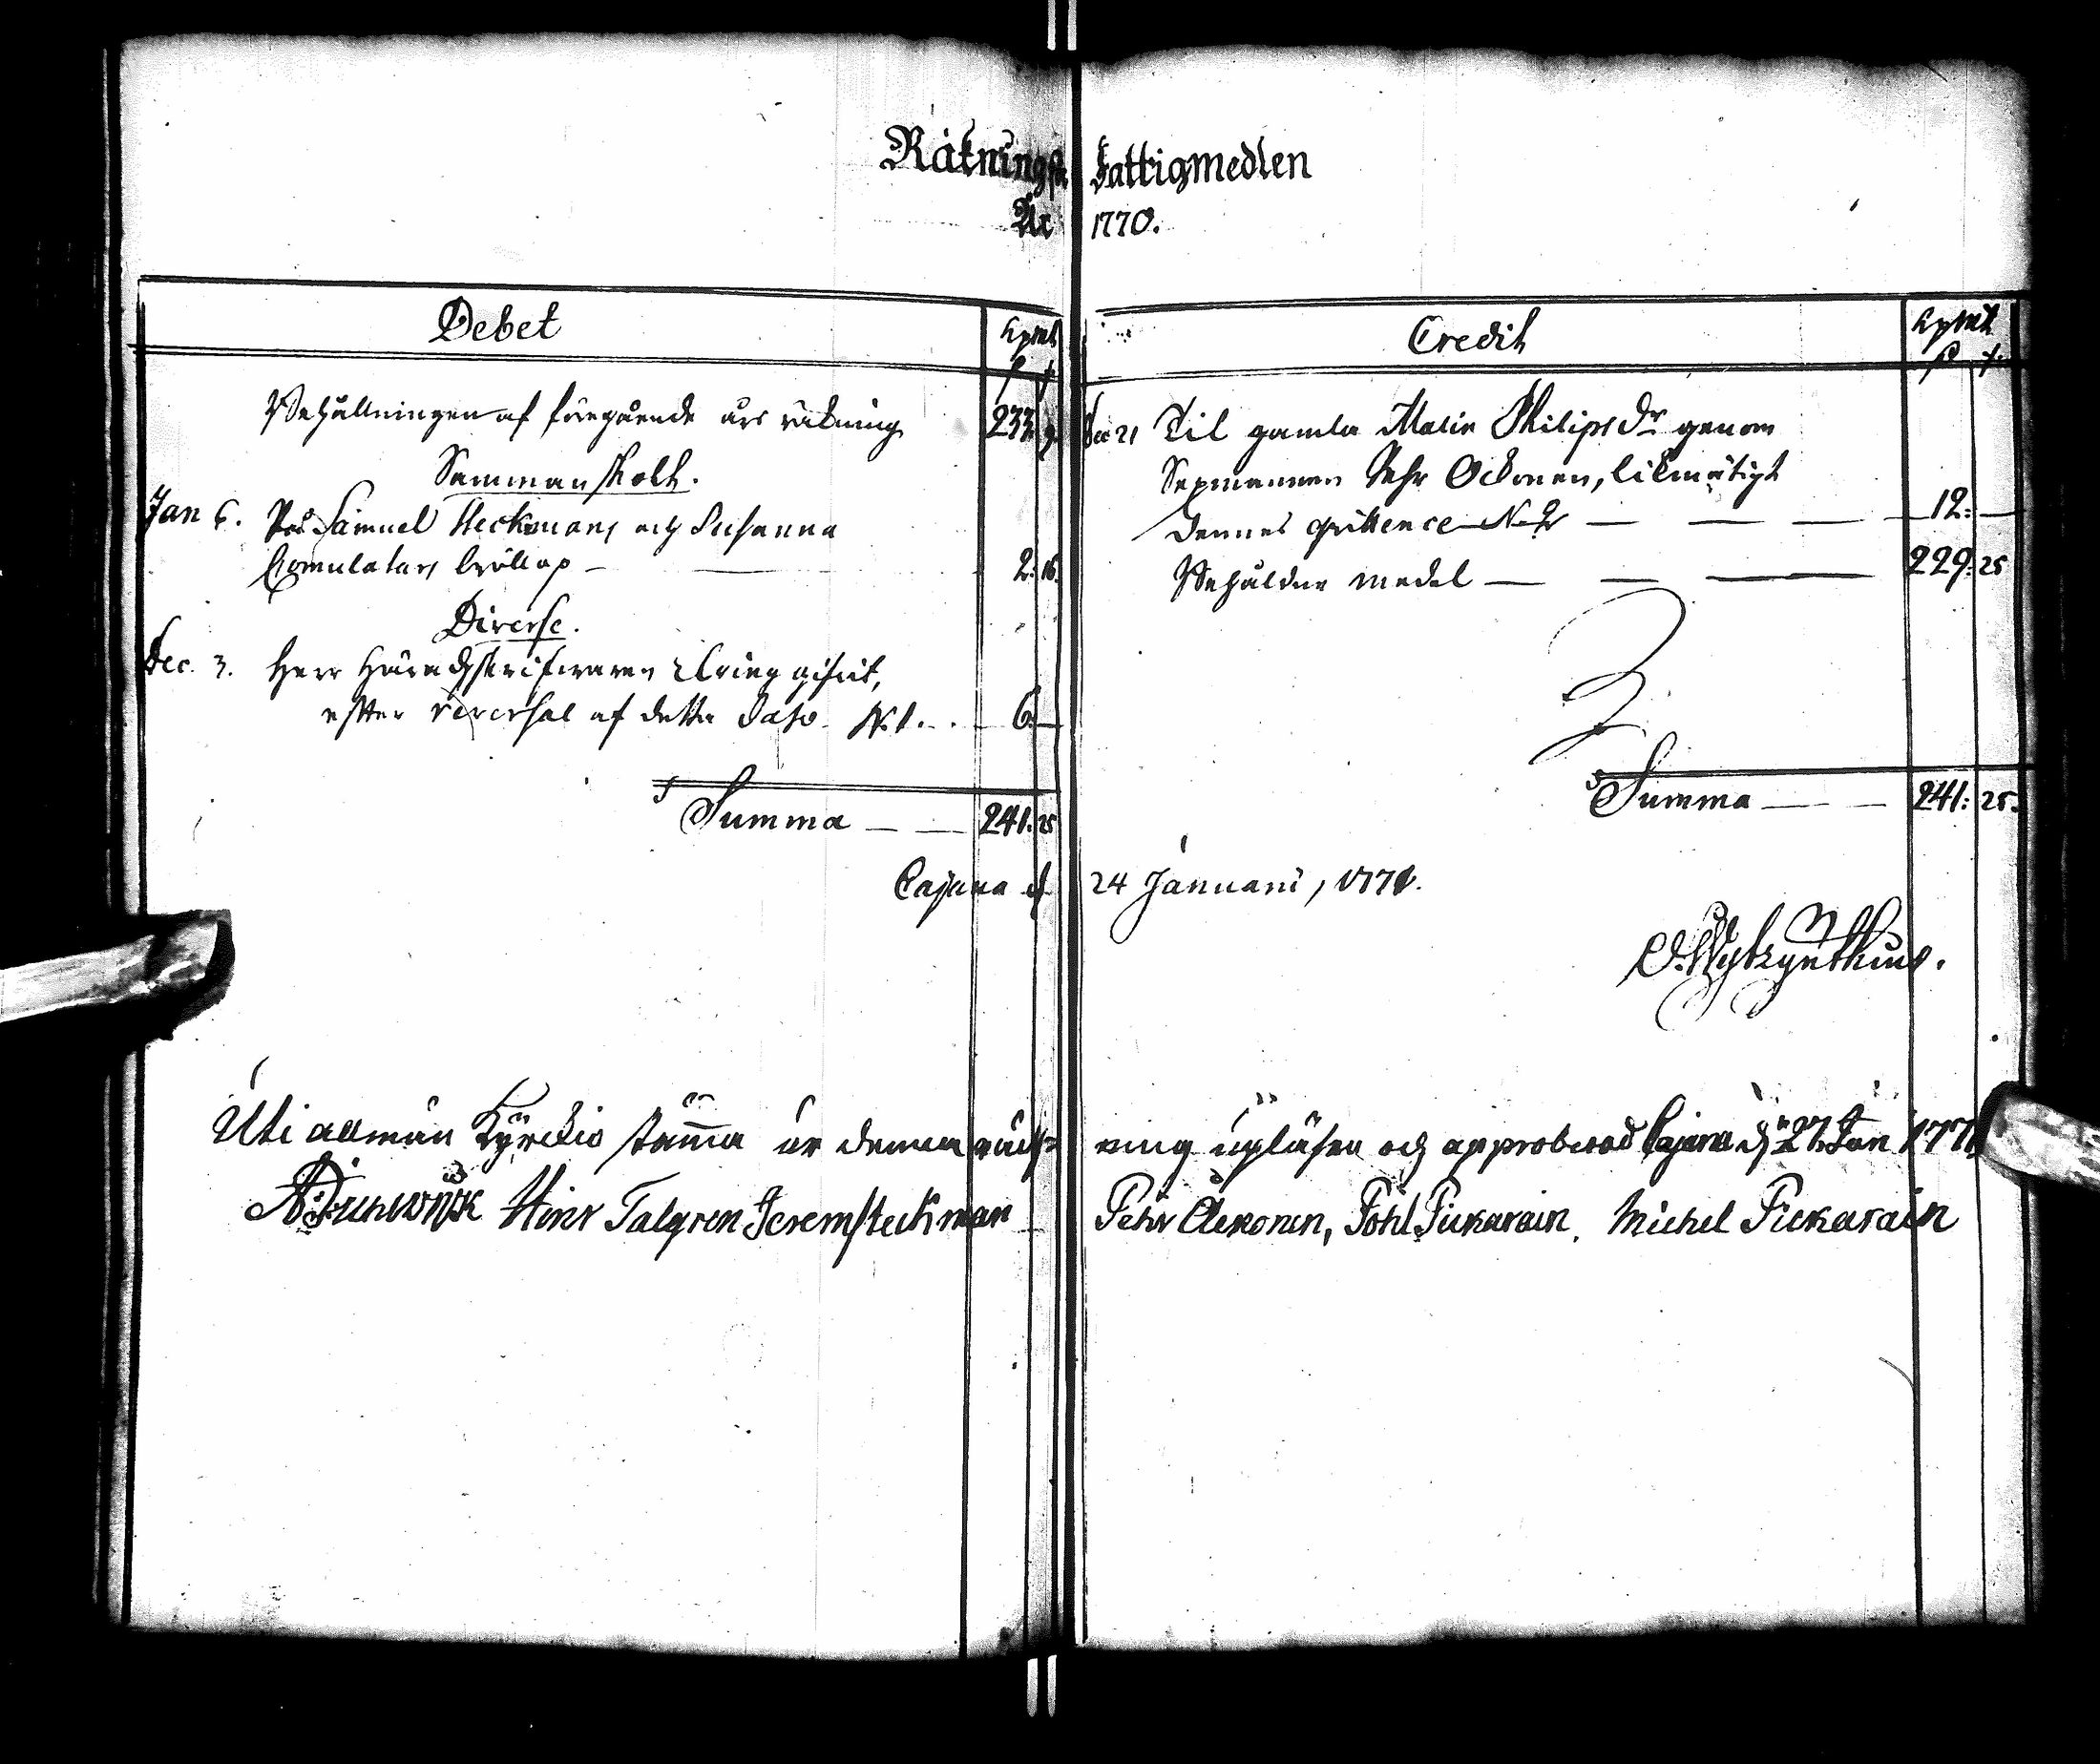 Räkning för Fattigmedlen
År 1770.
Debet
Kpmt
Behållningen af föregående års räkning 233. 9.
Sammanskott.
Jan 6. På Samuel Heckmans och Susanna
bröllop — 2. 16.
Diverse.
Dec. 3. Herr Häradsskrifwaren gifwit,
efter reversal af detta dato N. 1. 6. —
Summa — — 241. 25
Credit
Kpmt
Dec 21 Til gamla Malin Philips Dr genom
Sexmannen Pehr Ockonen, likmätigt
dennes quittence N. 2 — — — 12: —
Behåldne medel — — — 229: 25
Summa — — 241: 25.
Cajana d. 24 Januarii, 1771.
Uti allmän Kyrckio stämma är denna räck=
ning upläsen och approberad Cajana d. 27. Jan 1771
Hinr Talgren Jerem steckman
Pehr Ockonen, Påhl Pickarain, Michel Pickarain